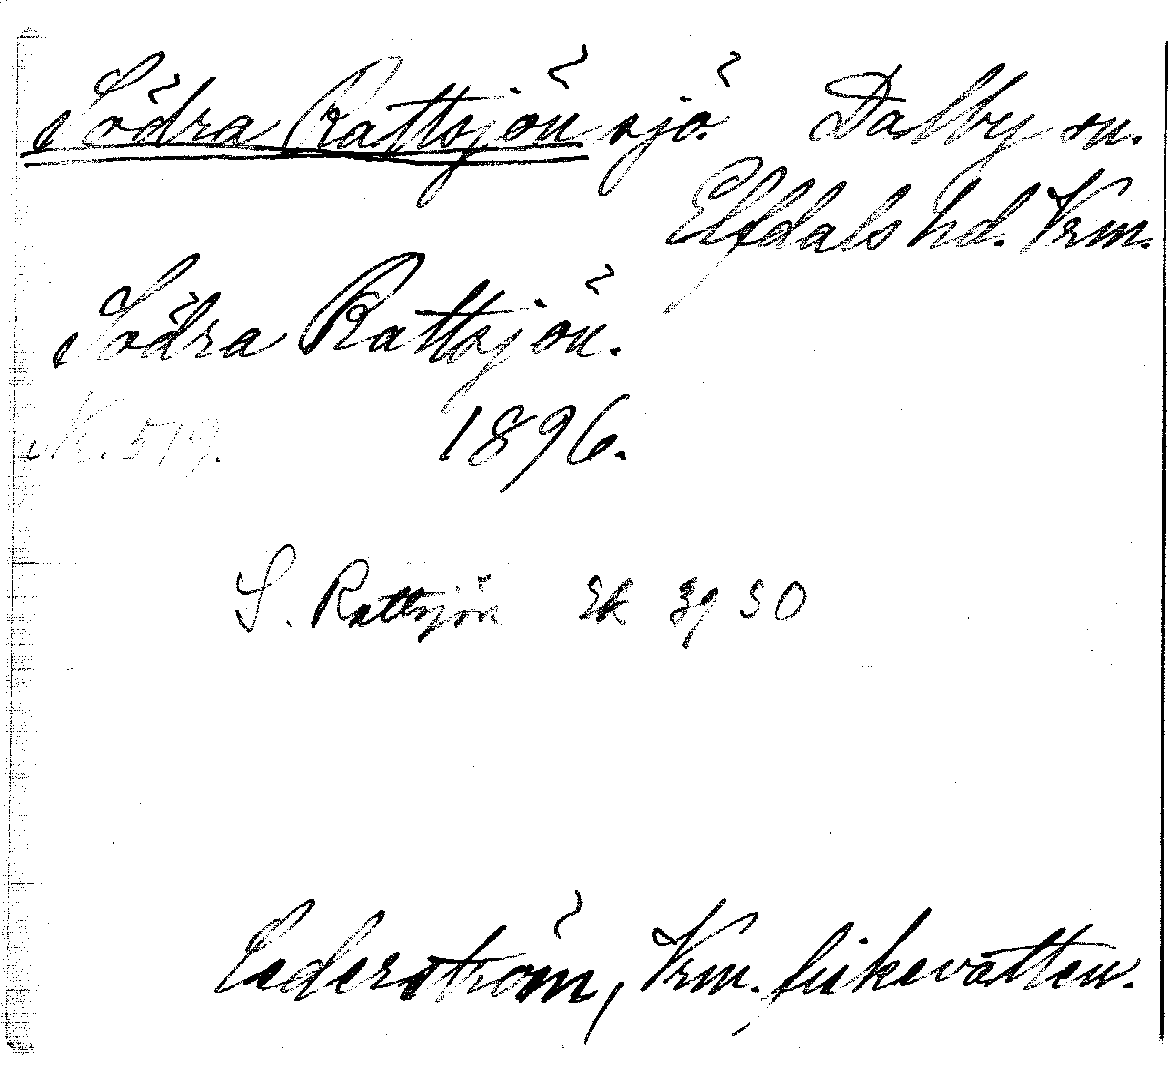 Södra Rattsjön sjö Dalby sn.
Elfdals hd. Vrm.
Södra Rattsjön.
Nr. 519. 1896.
S. Rattsjön Ek 39 SO
Cederström, Vrm. fiskevatten.